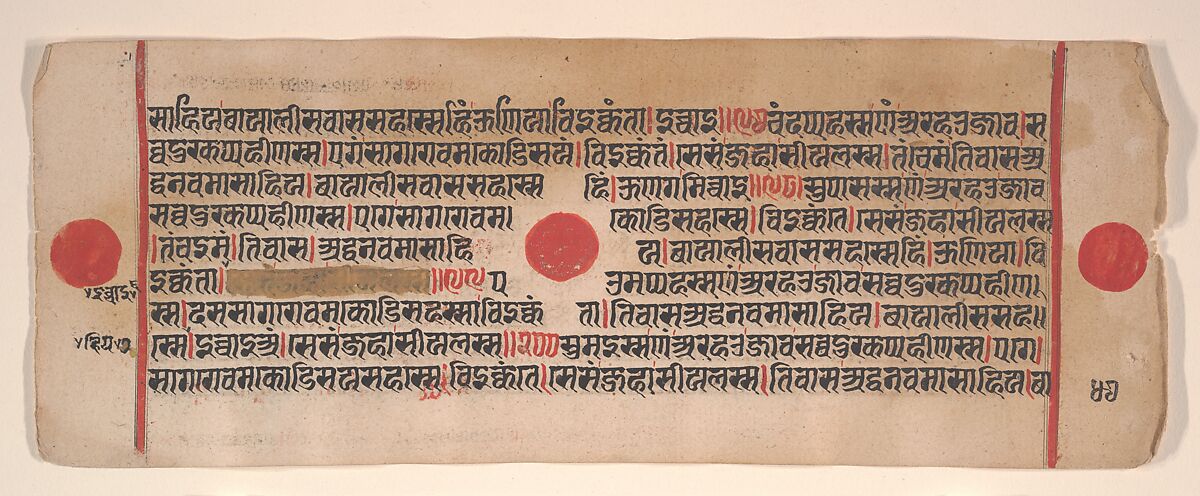 माहियबायालीसवाससहस्सेहिं।ऊणिया।विइक्कंता।इच्चाइ॥१९७चंदप्पहस्सणंअरहओजाव।स
व्वदुरकप्पहीणस्स।एगंसागरोवमकोडिसयं।विइक्कंतं।सेसंजहासीयलस्स।तंचइमंतिवासअ
द्धनवमासाहिय।बायालीसवाससहस्से हिं।ऊणगमिच्चाइ॥१९८।सुपासस्सणंअरहओजाव
सव्वदुरकप्पहीणस्स।एगेसागरोवम। कोडिसहस्से।विइक्कंते।सेसंजहासीयलस्स
।तंचइमं।तिवास।अद्धनवमासाहि य।बायालीसवाससहस्सेहिं।ऊणिया।वि
इक्कंता। ॥१९९ प उमप्पहस्सणंअरहओजावसव्वदुरकप्पहीण।
स्स।दससागरोवमकोडिसहस्साविइक्कं ता।तिवासअद्धनवमासाहिय।बायालीससह॥
स्से।इच्चाइअं।सेसंजहासीयलस्स॥२००सुमइस्सणंअरहओजावसव्वदुरकप्पहीणस्स।एगे।
सागरोवमकोडिसयसहस्से।विइक्कंते।सेसंजहासीयलस्स।तिवासअद्धनवमासाहिय।बा